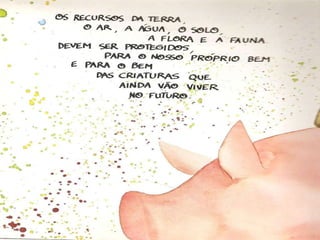 OS RECURSOS DA TERRA,
O AR, A ÁGUA, O SOLO,
A FLORA E A FAUNA
DEVEM SER PROTEGIDOS,
PARA O NOSSO PRÓPRIO BEM
E PARA O BEM
DAS CRIATURAS QUE
AINDA VÃO VIVER
NO FUTURO.